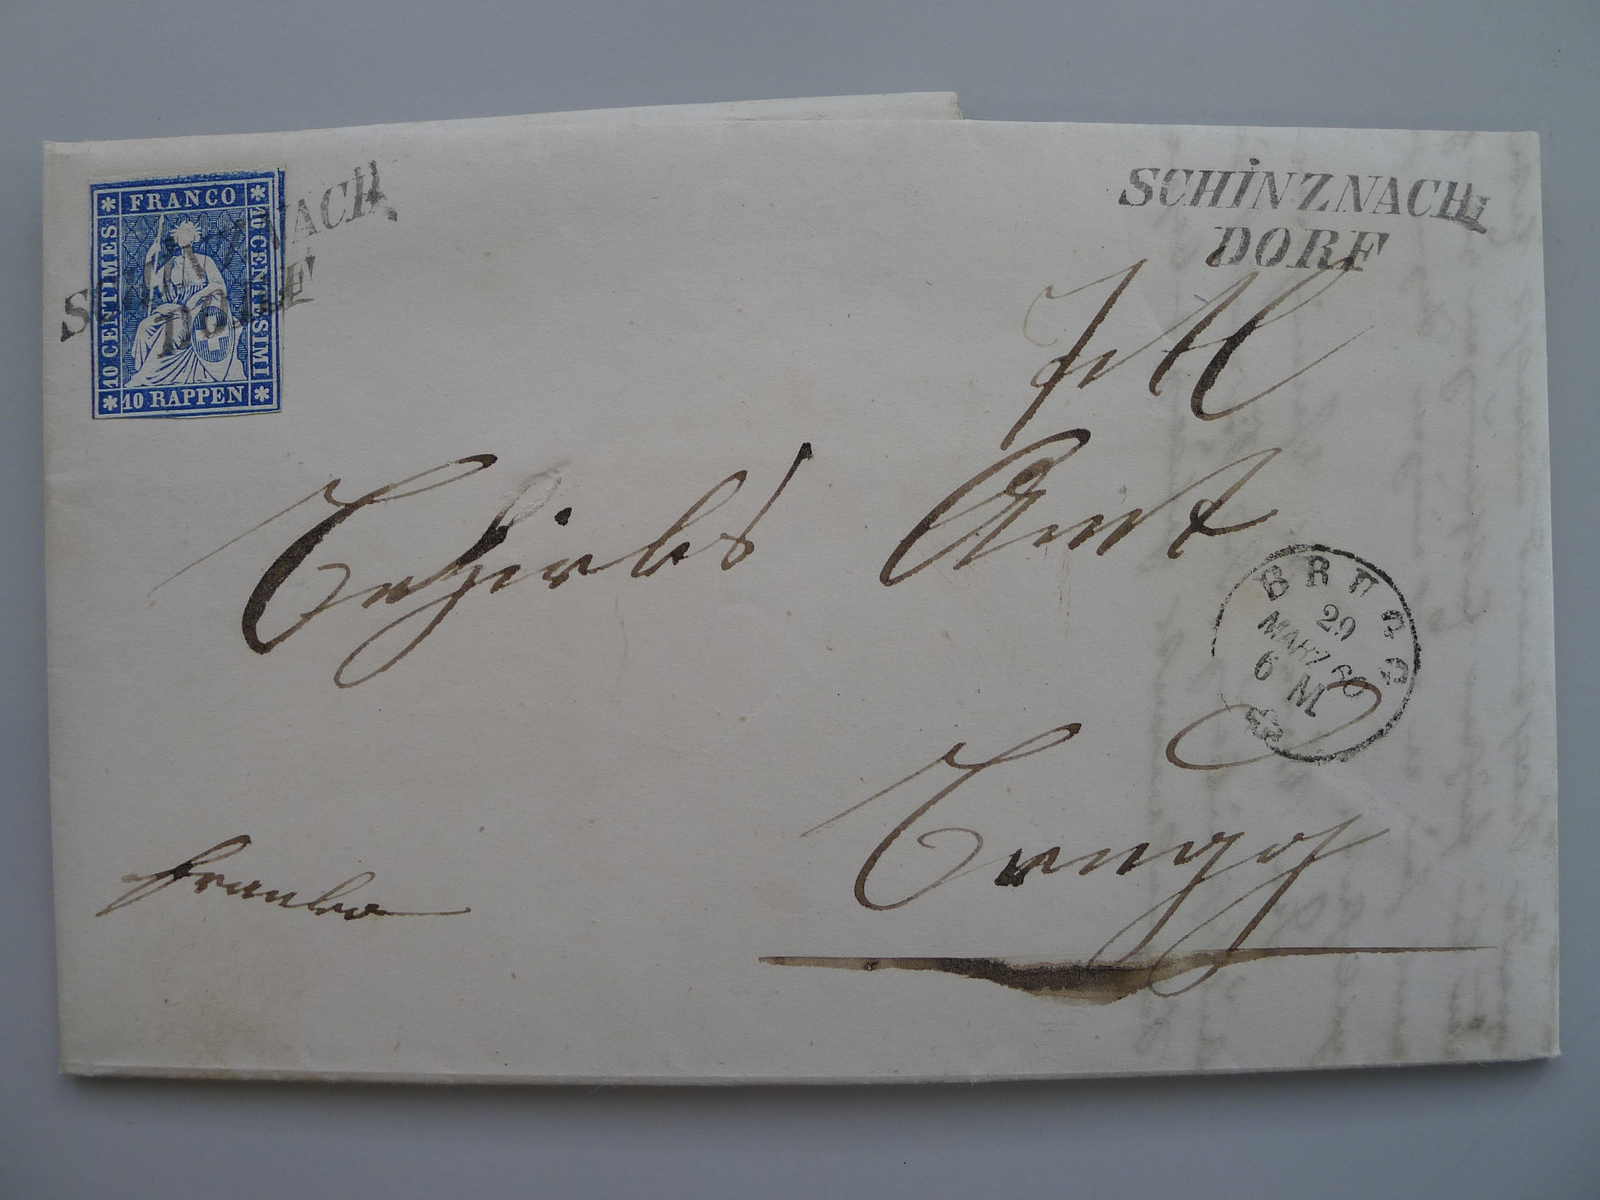 FRANCO
10 CENTIMES
10 CENTESIMI
10 RAPPEN
SCHINZNACH
DORF
SCHINZNACH
DORF
Bezirks Amt
BRUGG
29
MARZ 60
6 M
Brugg
Franko